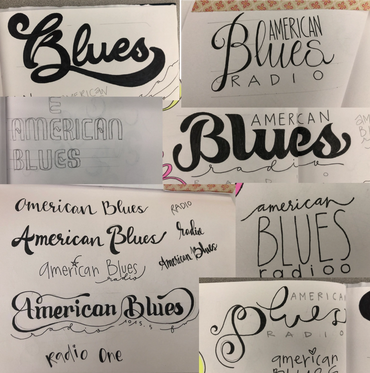 Blues
AMERICAN
AMERICAN
Blues
RADIO
E
AMERICAN
BLUES
AMERICAN
Blues
radio
American Blues
RADIO
American Blues
radio
American Blues
american Blues
radio
American Blues
radio
Radio One
american
BLUES
radioo
AMERICA
Blues
RADIO
american